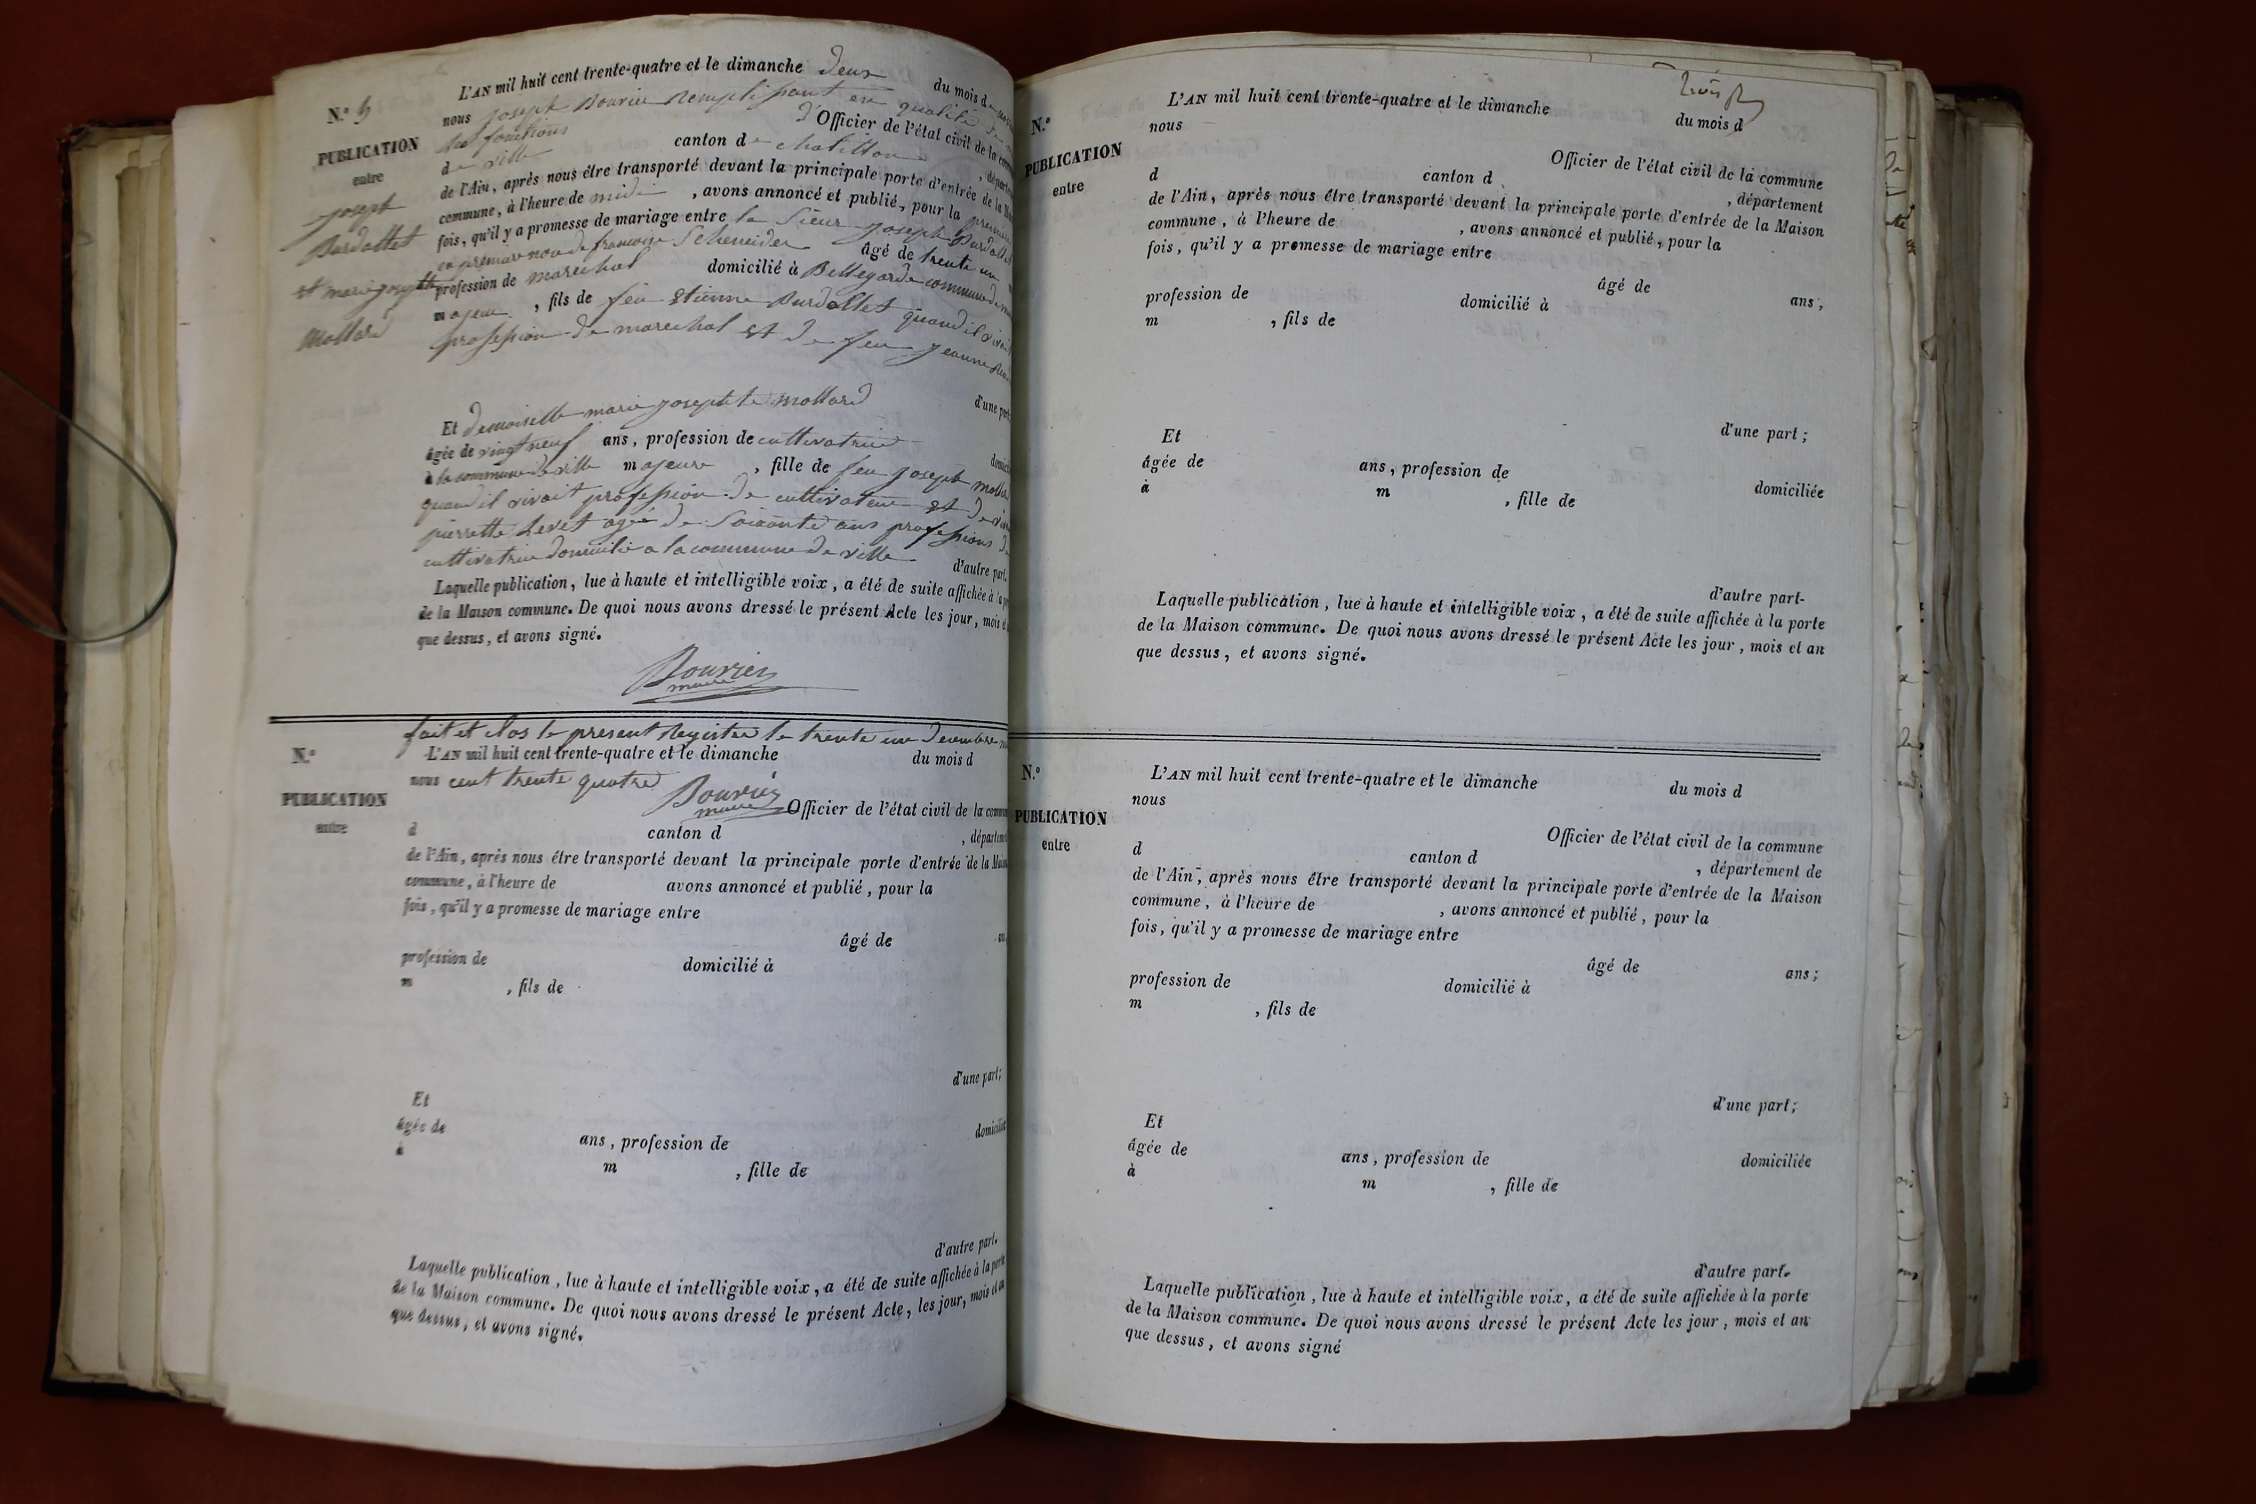 N.º 5
PUBLICATION
entre
joseph
Burdallet
et marie josephte
Mollard
L'AN mil huit cent trente-quatre et le dimanche deux du mois de
nous joseph Bouvier remplissant en qualité de
les fonctions d'Officier de l'état civil de la
de ville canton de chatillon , départ
de l'Ain, après nous être transporté devant la principale porte d'entrée de la
commune, à l'heure de midi , avons annoncé et publié, pour la premiere
fois, qu'il y a promesse de mariage entre le Sieur joseph Burdallet
en premiere noce de francoise Scheneider âgé de trente un
profession de marechal domicilié à Bellegarde commune de
majeur , fils de feu etienne Burdallet quand il vivait
profession de marechal et de feu jeanne
d'une part
Et demoiselle marie josephte mollard
âgée de vingt neuf ans, profession de cultivatrice
à la commune de ville majeure , fille de feu joseph mollard
quand il vivait profession de cultivateur et de
pierrette Levet agée de Soixante ans profession de
cultivatrice domicilié a la commune de ville d'autre part.
Laquelle publication, lue à haute et intelligible voix, a été de suite affichée à la
de la Maison commune. De quoi nous avons dressé le présent Acte les jour, mois et
que dessus, et avons signé.
Bouvier
maire
fait et clos le present Registre le trente un Decembre
N.º
PUBLICATION
entre
L'AN mil huit cent trente-quatre et le dimanche du mois d
nous cent trente quatre
Bouvier
maire
Officier de l'état civil de la commun
d canton d , départemen
de l'Ain, après nous être transporté devant la principale porte d'entrée de la Mais
commune, à l'heure de avons annoncé et publié, pour la
fois, qu'il y a promesse de mariage entre
âgé de
profession de domicilié à
m , fils de
d'une part;
Et
âgée de ans, profession de domiciliée
à m , fille de
d'autre part.
Laquelle publication, lue à haute et intelligible voix, a été de suite affichée à la porte
de la Maison commune. De quoi nous avons dressé le présent Acte, les jour, mois et an
que dessus, et avons signé.
N.º
PUBLICATION
entre
L'AN mil huit cent trente-quatre et le dimanche du mois d
nous
Officier de l'état civil de la commune
d canton d , département
de l'Ain, après nous être transporté devant la principale porte d'entrée de la Maison
commune, à l'heure de , avons annoncé et publié, pour la
fois, qu'il y a promesse de mariage entre
âgé de ans,
profession de domicilié à
m , fils de
d'une part;
Et
âgée de ans, profession de domiciliée
à m , fille de
d'autre part-
Laquelle publication, lue à haute et intelligible voix, a été de suite affichée à la porte
de la Maison commune. De quoi nous avons dressé le présent Acte les jour, mois et an
que dessus, et avons signé.
N.º
PUBLICATION
entre
L'AN mil huit cent trente-quatre et le dimanche du mois d
nous
Officier de l'état civil de la commune
d canton d , département de
de l'Ain, après nous être transporté devant la principale porte d'entrée de la Maison
commune, à l'heure de , avons annoncé et publié, pour la
fois, qu'il y a promesse de mariage entre
âgé de ans;
profession de domicilié à
m , fils de
d'une part;
Et
âgée de ans, profession de domiciliée
à m , fille de
d'autre part.
Laquelle publication, lue à haute et intelligible voix, a été de suite affichée à la porte
de la Maison commune. De quoi nous avons dressé le présent Acte les jour, mois et an
que dessus, et avons signé